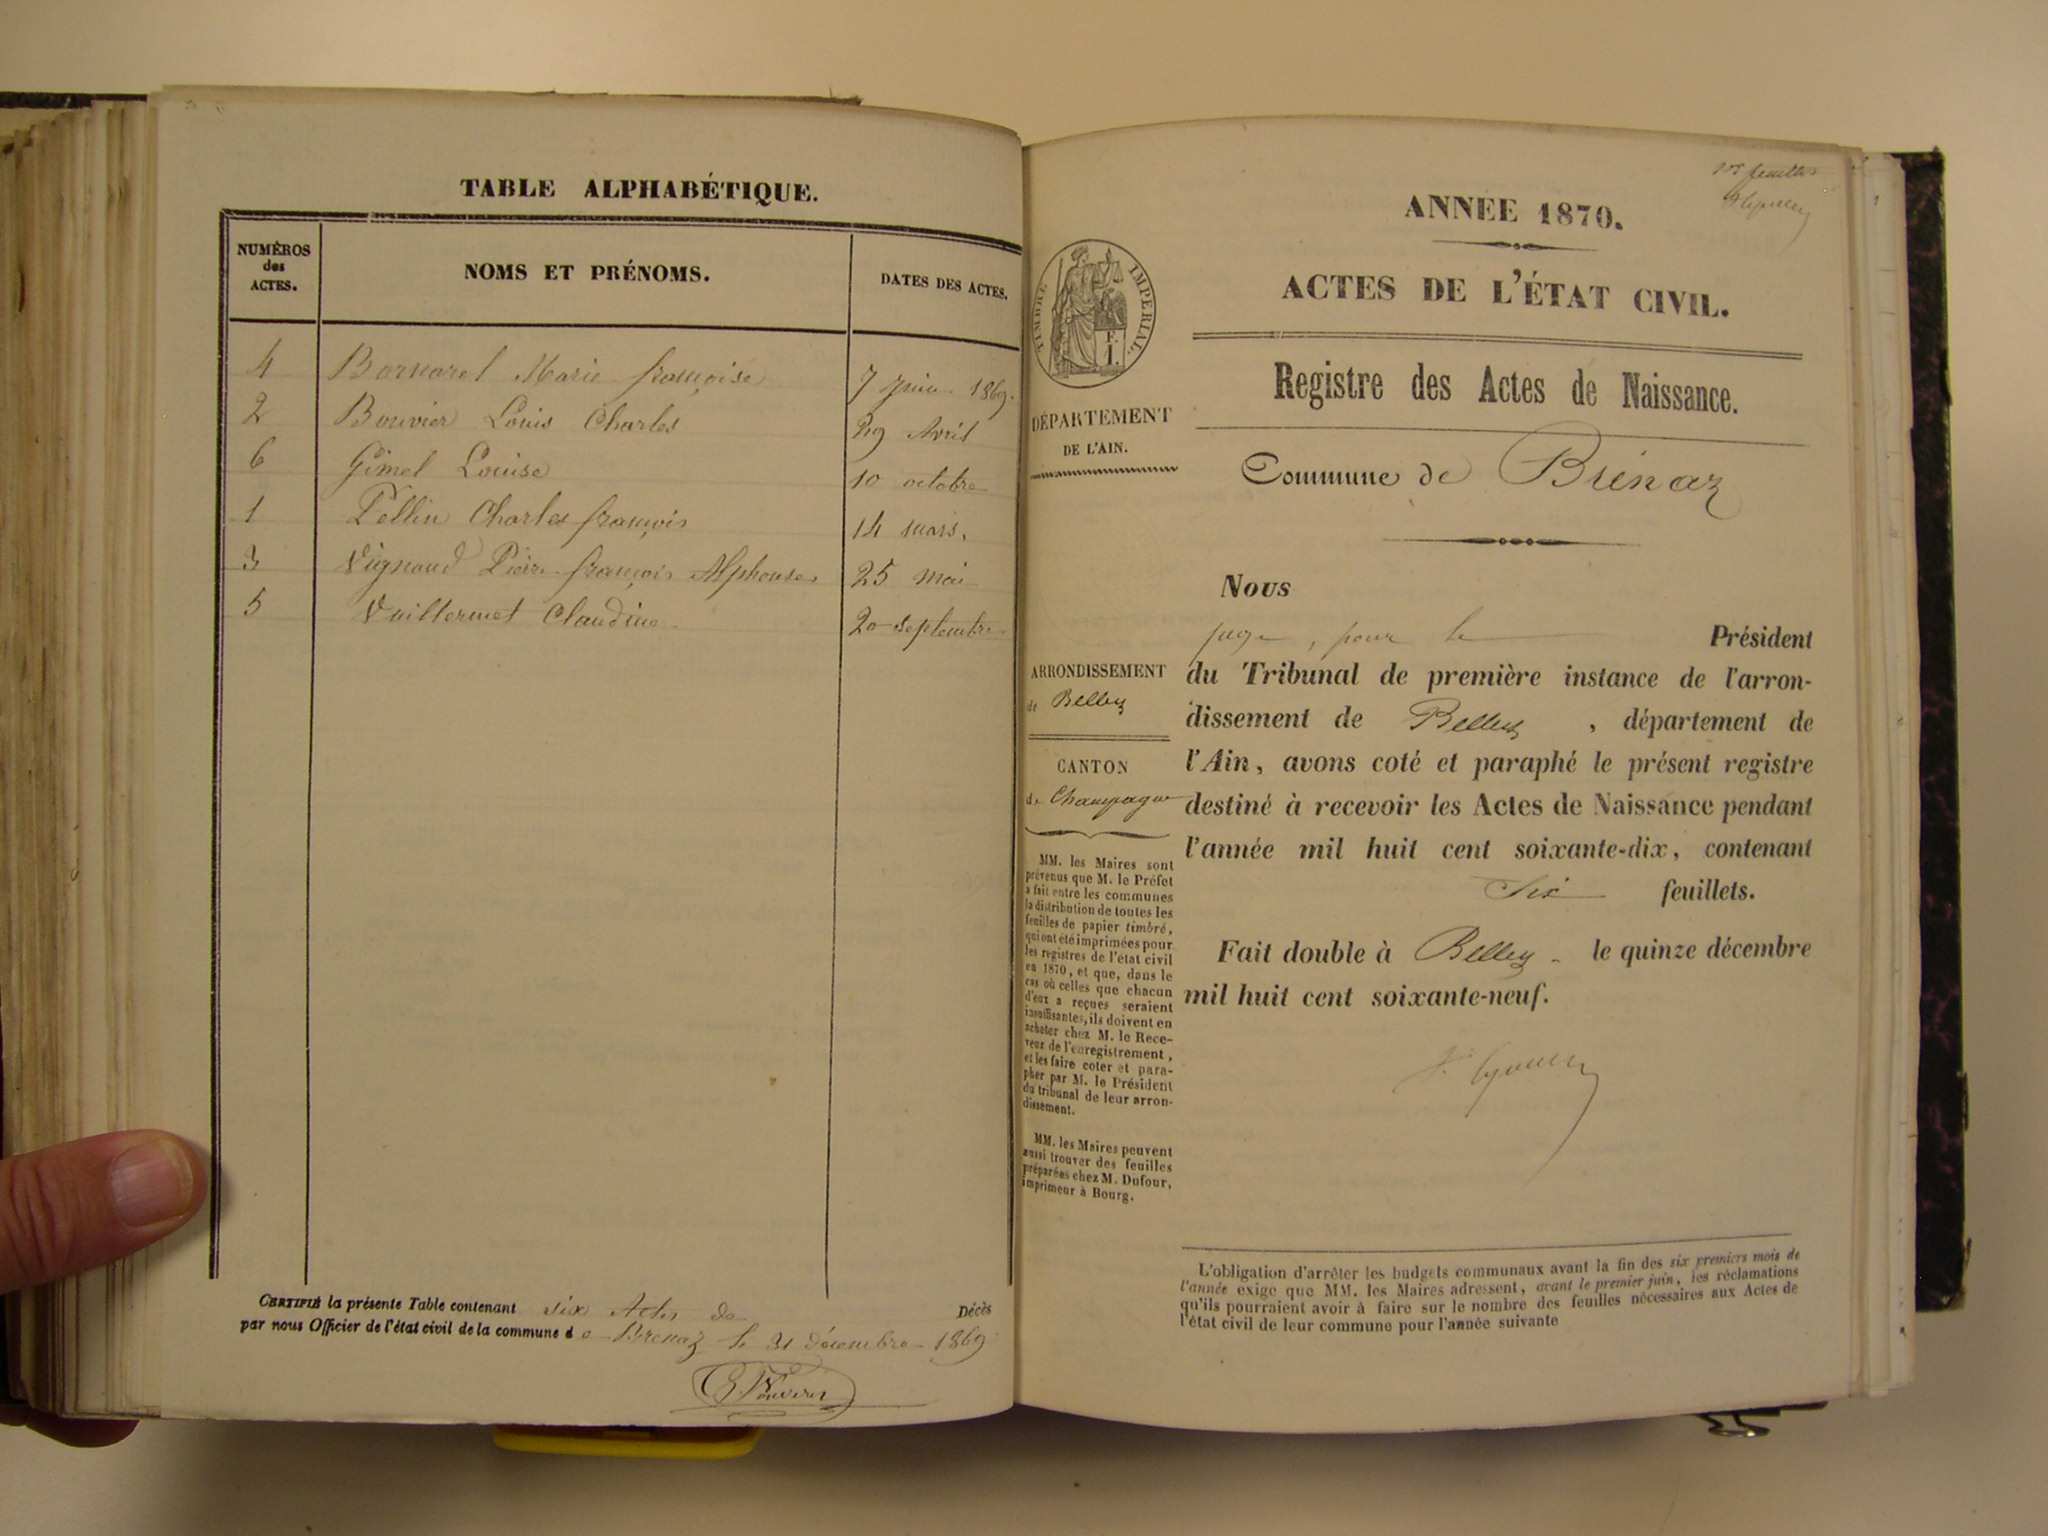 TABLE ALPHABÉTIQUE.
NUMÉROS
des
ACTES.
NOMS ET PRÉNOMS.
DATES DES ACTES.
4 Bornarel Marie françoise 7 juin 1869.
2 Bouvier Louis Charles 29 Avril
6 Gimel Louise 10 octobre
1 Pellin Charles françois 14 mars.
3 Vignaud Pierre françois Alphonse 25 mai
5 Vuillermet Claudine 20 septembre
CERTIFIÉ la présente Table contenant six Actes de Décès
par nous Officier de l'état civil de la commune de Brénaz le 31 décembre 1869
1er feuillet
ANNÉE 1870.
ACTES DE L'ÉTAT CIVIL.
TIMBRE IMPÉRIAL.
Registre des Actes de Naissance.
DÉPARTEMENT
DE L'AIN.
Commune de Brénaz
ARRONDISSEMENT
de Belley
CANTON
de Champagne
MM. les Maires sont
prévenus que M. le Préfet
a fait entre les communes
la distribution de toutes les
feuilles de papier timbré,
qui ont été imprimées pour
les registres de l'état civil
en 1870, et que, dans le
cas où celles que chacun
d'eux a reçues seraient
insuffisantes, ils doivent en
acheter chez M. le Rece-
veur de l'enregistrement,
et les faire coter et para-
pher par M. le Président
du tribunal de leur arron-
dissement.
MM. les Maires peuvent
aussi trouver des feuilles
préparées chez M. Dufour,
imprimeur à Bourg.
Nous
juge, pour le Président
du Tribunal de première instance de l'arron-
dissement de Belley, département de
l'Ain, avons coté et paraphé le présent registre
destiné à recevoir les Actes de Naissance pendant
l'année mil huit cent soixante-dix, contenant
Six feuillets.
Fait double à Belley le quinze décembre
mil huit cent soixante-neuf.
L'obligation d'arrêter les budgets communaux avant la fin des six premiers mois de
l'année exige que MM. les Maires adressent, avant le premier juin, les réclamations
qu'ils pourraient avoir à faire sur le nombre des feuilles nécessaires aux Actes de
l'état civil de leur commune pour l'année suivante